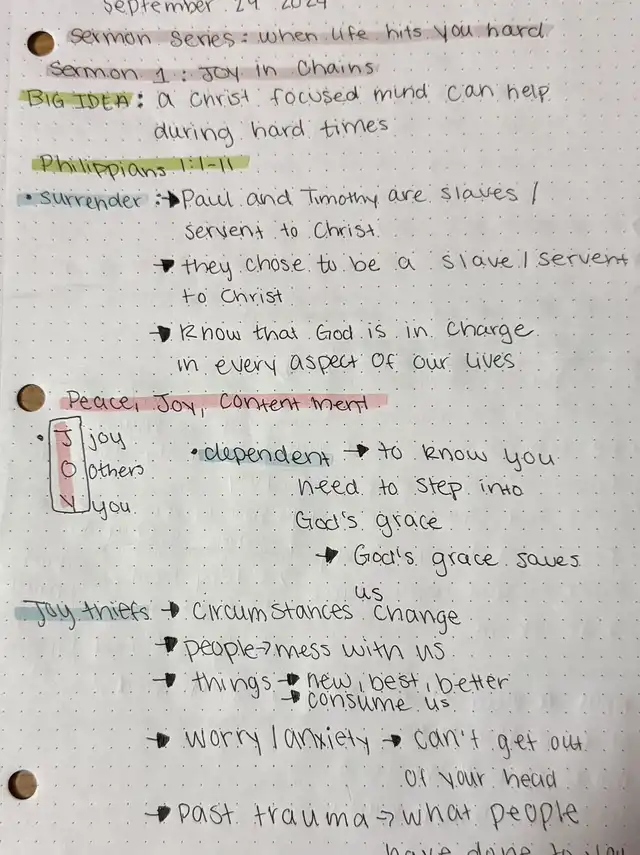 September 29 2024
Sermon Series: when life hits you hard
Sermon 1: Joy in Chains
BIG IDEA: a Christ focused mind can help
during hard times
Philippians 1:1-11
• surrender :→ Paul and Timothy are slaves /
servent to Christ
→ they chose to be a slave / servent
to Christ
→ Know that God is in charge
in every aspect of our lives
Peace, Joy, contentment
• J joy
O others
Y you
• dependent → to know you
need to step into
God's grace
→ God's grace saves
us
Joy thiefs → circumstances change
→ people → mess with us
→ things → new, best, better
→ consume us
→ worry / anxiety → can't get out
of your head
→ past trauma → what people
have done to